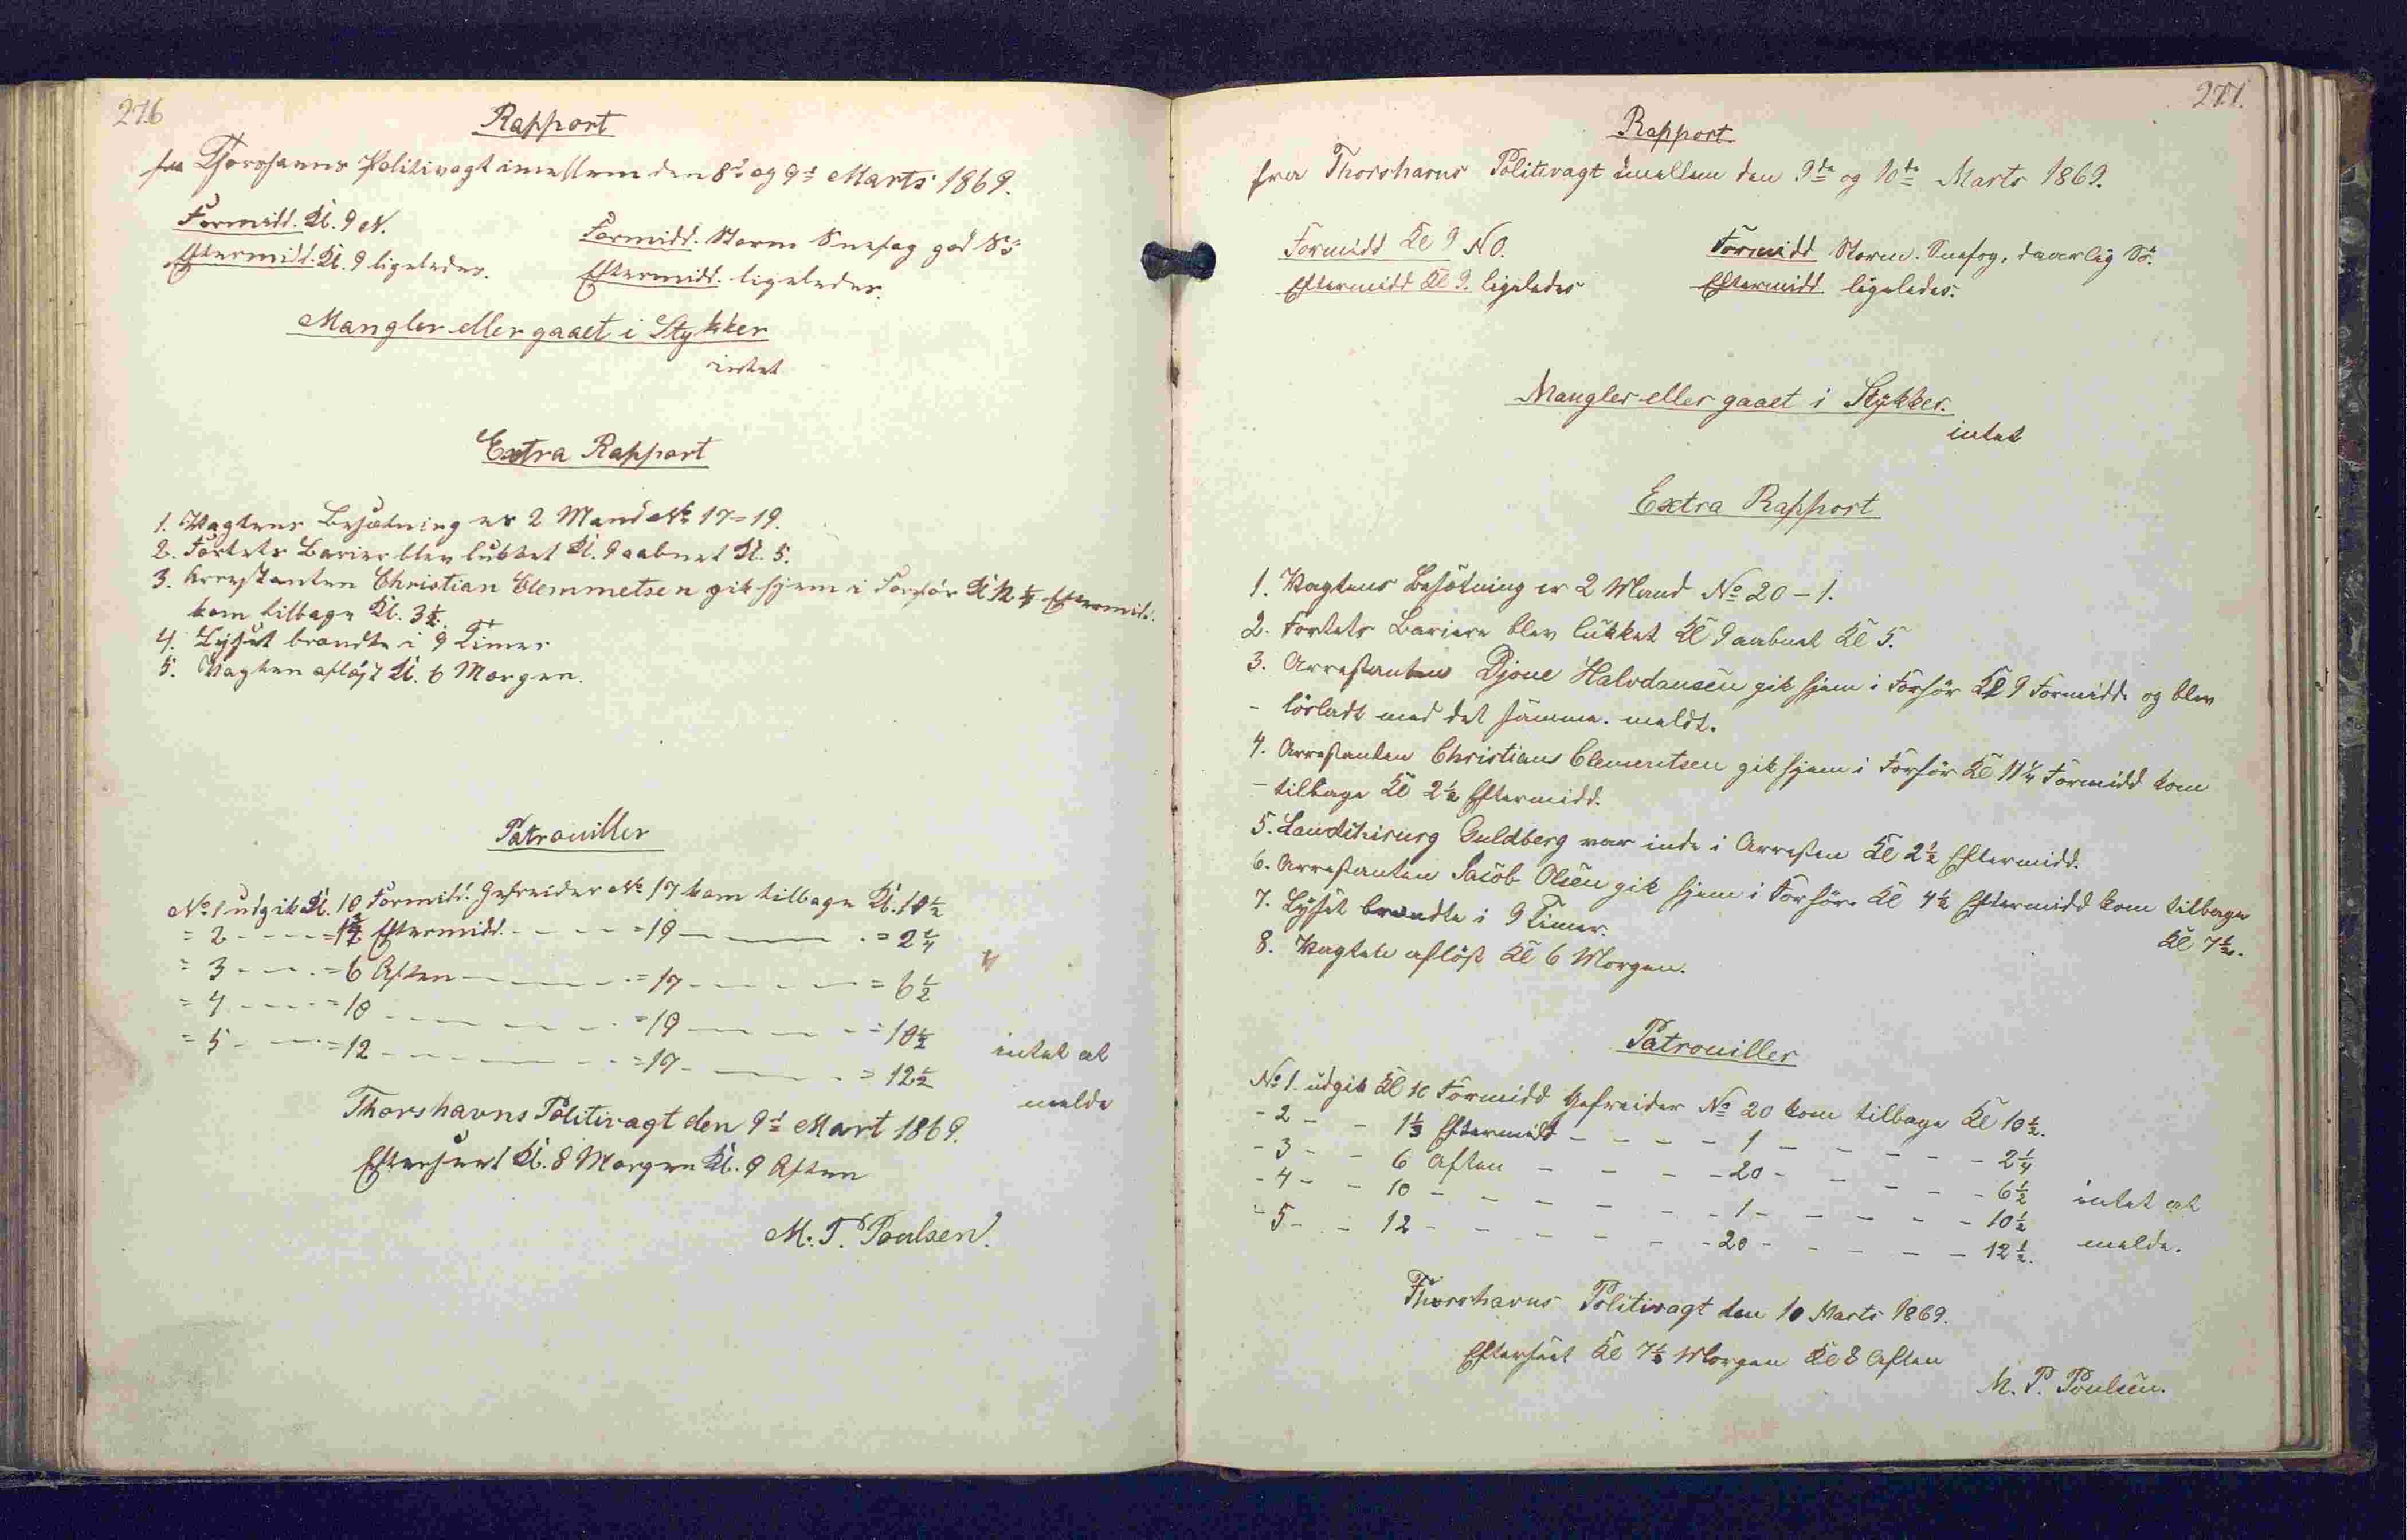 276
Rapport
fra Thorshavns Politivagt imellem den 8d og 9d Marts 1869.
Formidd. Kl. 9 N.
Eftermidd. Kl. 9 ligeledes.
Formidd. Storm Snefog god Sö
Eftermidd. ligeledes.
Mangler eller gaaet i Stykker
intet
Extra Rapport
1. Vagtens Besætning er 2 Mand No 17=19.
2. Fortets Barier blev lukket Kl. 9 aabnet Kl. 5.
3. Arrestanten Christian Clemmetsen gik hjem i Forhör Kl 12 1/4 Eftermidd.
kom tilbage Kl. 3 1/2.
4. Lyset brændte i 9 Timer
5. Vagten aflöst Kl. 6 Morgen.
Patrouiller
No 1 udgik Kl. 10 Formidd. Gefreider No 17 kom tilbage Kl. 10 1/2
= 2 - - - - = 1 1/2 Eftermidd. - - - - = 19 - - - - = 2 1/4
= 3 - - - = 6 Aften - - - - = 17 - - - - = 6 1/2
= 4 - - - = 10 - - - - = 19 - - - - = 10 1/2
= 5 - - - = 12 - - - - = 17 - - - - = 12 1/2
intet at
melde
Thorshavns Politivagt den 9d Mart 1869.
Efterseet Kl. 8 Morgen Kl. 9 Aften
M. P. Poulsen.
277.
Rapport
fra Thorshavns Politivagt imellem den 9de og 10de Marts 1869.
Formidd Kl 9 NO.
Eftermidd Kl 9. ligeledes
Formidd Storm. Snefog, daarlig Sö.
Eftermidd ligeledes.
Mangler eller gaaet i Stykker.
intet
Extra Rapport
1. Vagtens Besötning er 2 Mand No 20 - 1.
2. Fortets Bariere blev lukket Kl 9 aabnet Kl 5.
3. Arrestanten Djone Halvdansen gik hjem i Forhör Kl 9 Formidd. og blev
- lösladt med det samme. meldt.
4. Arrestanten Christian Clementsen gik hjem i Forhör Kl 11 1/4 Formidd kom
- tilbage Kl 2 1/2 Eftermidd.
5. Landchirurg Guldberg var inde i Arresten Kl 2 1/2 Eftermidd.
6. Arrestanten Jacob Olsen gik hjem i Forhör. Kl 4 1/2 Eftermidd kom tilbage
Kl 7 1/2.
7. Lyset brændte i 9 Timer.
8. Vagten aflöst Kl 6 Morgen.
Patrouiller
No 1 udgik Kl 10 Formidd Gefreider No 20 kom tilbage Kl 10 1/2.
- 2 - - 1 1/2 Eftermidd - - - - 1 - - - - - 2 1/4
- 3 - - 6 Aften - - - - 20 - - - - - 6 1/2
- 4 - - 10 - - - - - 1 - - - - - 10 1/2
- 5 - - 12 - - - - - 20 - - - - - 12 1/2.
intet at
melde.
Thorshavns Politivagt den 10 Marts 1869.
Efterseet Kl 7 1/2 Morgen Kl 8 Aften
M. P. Poulsen.